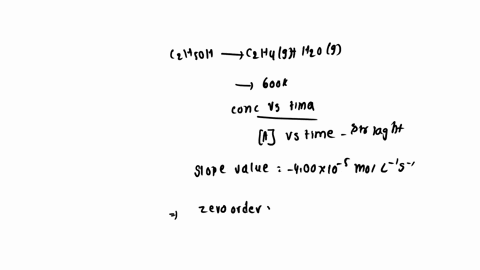 C2H5OH → C2H4(g)+ H2O(g)
→ 600k
conc vs tima
[A] vs time - straght
slope value = -4.00×10-5 mol L-1s-1
⇒ zero order: